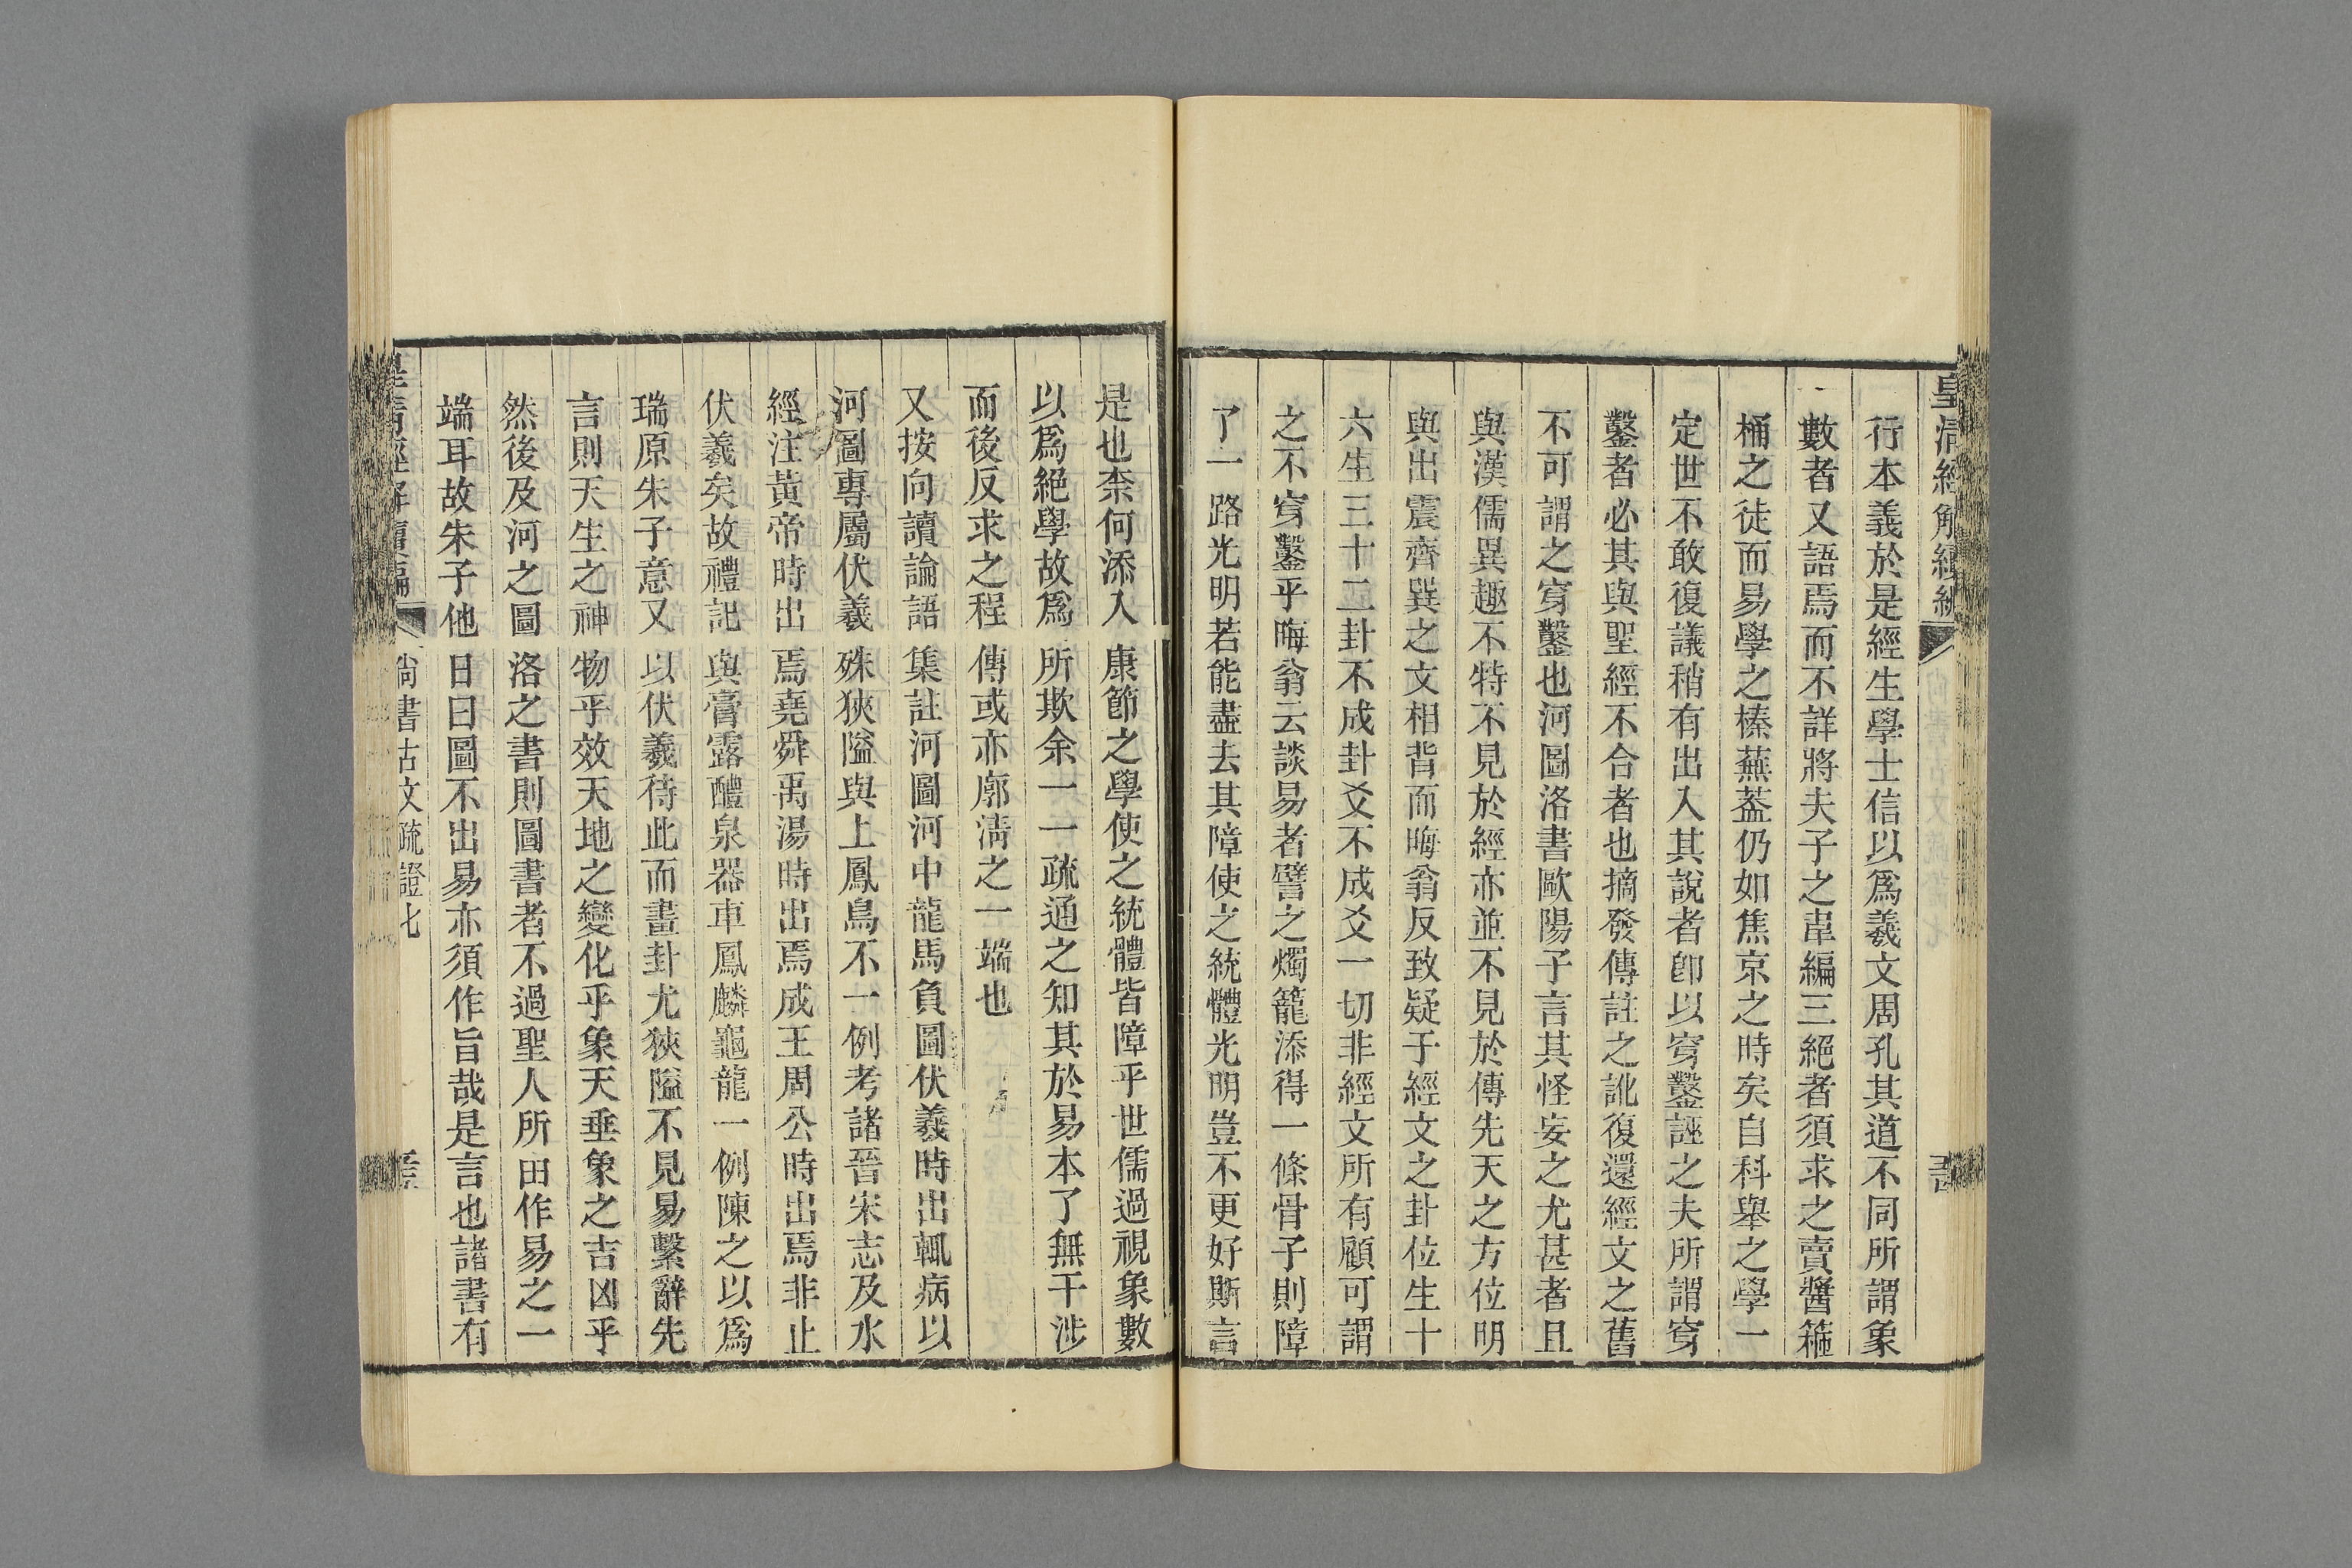 皇清經解續編
行本義於是經生學士信以爲羲文周孔其道不同所謂象
數者又語焉而不詳將夫子之韋編三絕者須求之賣醬箍
桶之徒而易學之榛蕪葢仍如焦京之時矣自科舉之學一
定世不敢復議稍有出入其說者卽以穿鑿誣之夫所謂穿
鑿者必其與聖經不合者也摘發傳註之訛復還經文之舊
不可謂之穿鑿也河圖洛書歐陽子言其怪妄之尤甚者且
與漢儒異趣不特不見於經亦並不見於傳先天之方位明
與出震齊巽之文相背而晦翁反致疑于經文之卦位生十
六生三十二卦不成卦爻不成爻一切非經文所有顧可謂
之不穿鑿乎晦翁云談易者譬之燭籠添得一條骨子則障
了一路光明若能盡去其障使之統體光明豈不更好斯言
是也柰何添入康節之學使之統體皆障乎世儒過視象數
以爲絕學故爲所欺余一一疏通之知其於易本了無干涉
而後反求之程傳或亦廓淸之一端也
又按向讀論語集註河圖河中龍馬負圖伏羲時出輒病以
河圖專屬伏羲殊狹隘與上鳳鳥不一例考諸晉宋志及水
經注黃帝時出焉堯舜禹湯時出焉成王周公時出焉非止
伏羲矣故禮記與膏露醴泉器車鳳麟龜龍一例陳之以爲
瑞原朱子意又以伏羲待此而畫卦尤狹隘不見易繫辭先
言則天生之神物乎效天地之變化乎象天垂象之吉凶乎
然後及河之圖洛之書則圖書者不過聖人所由作易之一
端耳故朱子他日曰圖不出易亦須作旨哉是言也諸書有
皇清經解續編
尚書古文疏證七